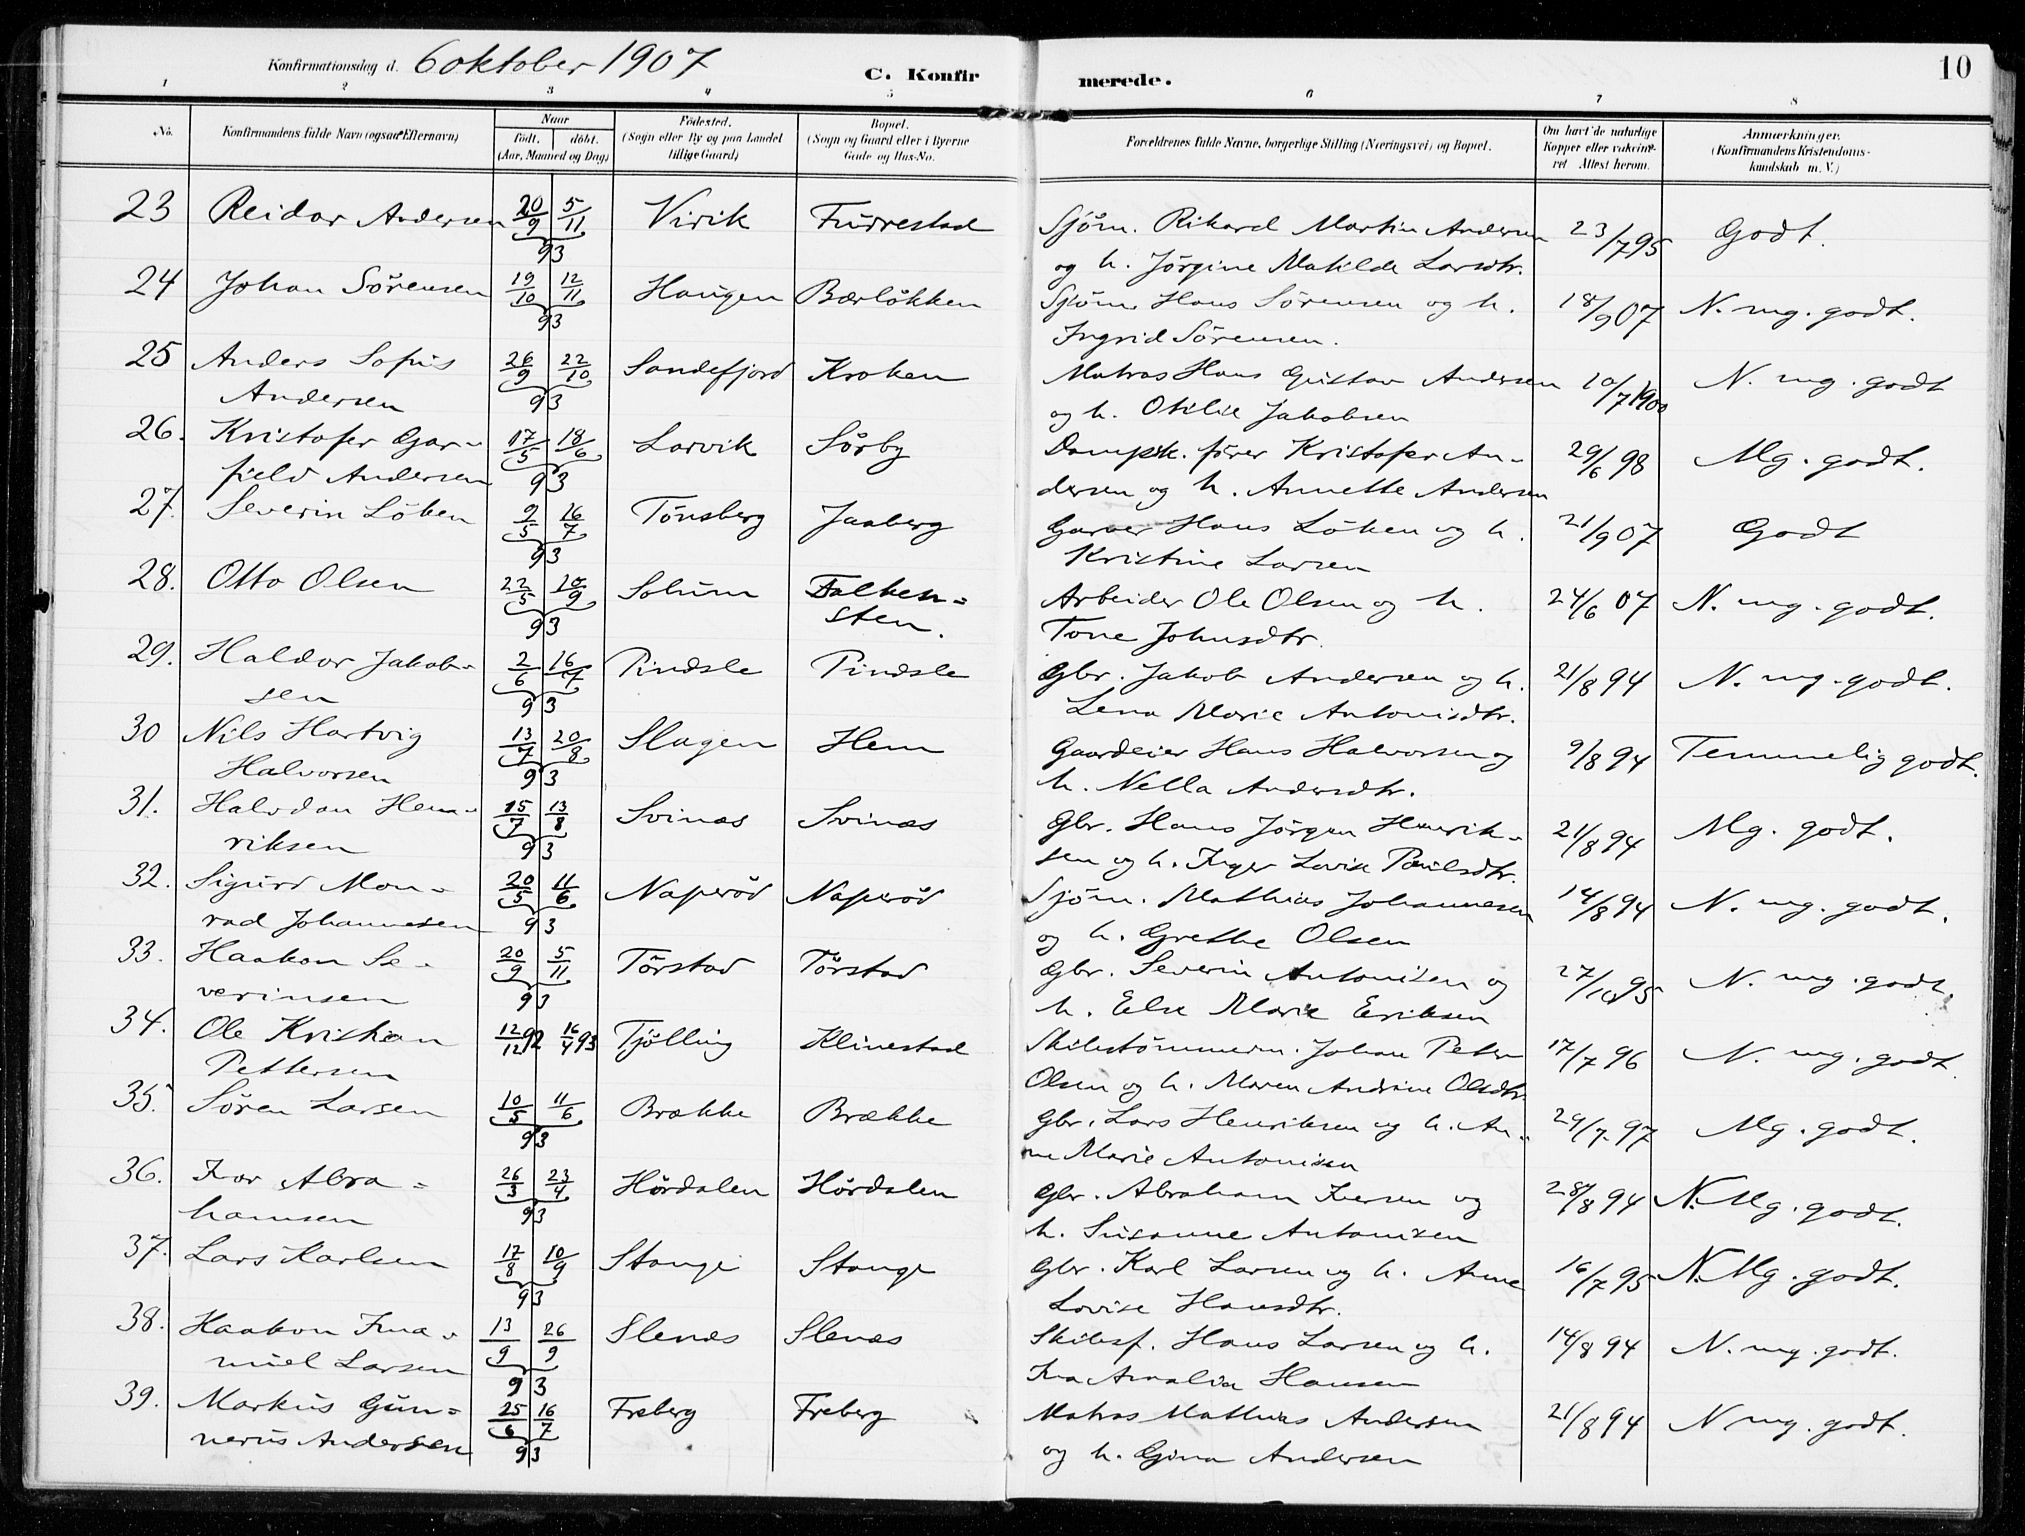 Konfirmationsdag d. 6 oktober 1907
C. Konfirmerede.
10
1 2 3 4 5 6 7 8
No. Konfirmandens fulde Navn (ogsaa Efternavn) Naar født. døbt. (Aar, Maaned og Dag) Fødested. (Sogn eller By og paa Landet tillige Gaard) Bopæl. (Sogn og Gaard eller i Byerne Gade og Hus-No. Forældrenes fulde Navne, borgerlige Stilling (Næringsvei) og Bopæl. Om havt de naturlige Kopper eller vakcineret Attest herom. Anmærkninger. (Konfirmandens Kristendomskundskab m. V.)
23 Reidar Andersen 20/9 5/11 Virik Furrestad Sjöm. Rikard Martin Andersen 23/7 95 Godt.
93 og h. Jörgine Matilde Larsdtr.
24 Johan Sörensen 19/10 12/11 Haugen Bærlökken Sjöm. Hans Sörensen og h. 18/9 07 N. mg. godt.
93 Ingrid Sörensen.
25 Anders Sofus 26/9 22/10 Sandefjord Kroken Matros Hans Gustav Andersen 10/7 1900 N. mg. godt
Andersen 93 og h. Otilie Jakobsen
26. Kristofer Gar- 17/5 18/6 Larvik Sörby Dampsk. förer Kristofer An- 29/6 98 Mg. godt.
field Andersen 93 dersen og h. Annette Andersen
27. Severin Löken 9/5 16/7 Tönsberg Jaaberg Garver Hans Löken og h. 21/9 07 Godt
93 Kristine Larsen
28. Otto Olsen 22/5 10/9 Solum Falken- Arbeider Ole Olsen og h. 24/6 07 N. mg. godt.
93 sten. Tone Johnsdtr.
29. Haldor Jakob- 2/6 16/7 Pindsle Pindsle Gbr. Jakob Andersen og h. 21/8 94 N. mg. godt.
sen 93 Lena Marie Antonisdtr.
30 Nils Hartvig 13/7 20/8 Slagen Hem Gaardeier Hans Halvorsen og 9/8 94 Temmelig godt.
Halvorsen 93 h. Nella Andersdtr.
31. Halvdan Hen- 15/7 13/8 Svinæs Svinæs Gbr. Hans Jörgen Henrik- 21/8 94 Mg. godt.
riksen 93 sen og h. Inger Lovise Paulsdtr.
32. Sigurd Mon- 20/5 11/6 Naperöd Naperöd Sjöm. Mathias Johannesen 14/8 94 N. mg. godt.
rad Johannesen 93 og h. Grethe Olsen
33. Haakon Se- 20/9 5/11 Törstad Törstad Gbr. Severin Antonisen og 27/10 95 N. mg. godt.
verinsen 93 h. Else Marie Eriksen
34. Ole Kristian 12/12 92 16/4 93 Tjölling Klinestad Skibstömmerm. Johan Peter 17/7 96 N. mg. godt.
Pettersen Olsen og h. Maren Andrine Olsdtr.
35. Sören Larsen 10/5 11/6 Brække Brække Gbr. Lars Henriksen og h. An- 29/7. 97 Mg. godt.
93 ne Marie Antonisen
36. Ivar Abra- 26/3 23/4 Hördalen Hördalen Gbr. Abraham Iversen og 28/8 94 N. Mg. godt.
hamsen 93 h. Susanne Antonisen
37. Lars Karlsen 17/8 10/9 Stange Stange Gbr. Karl Larsen og h. Anne 16/7 95 N. Mg. godt.
93 Lovise Hansdtr.
38. Haakon Ima- 13/9 26/9 Slenæs Slenæs Skibsf. Hans Larsen og h. 14/8 94 N. mg. godt.
nuel Larsen 93 Ina Amalia Hansen
39. Markus Gun- 25/6 16/7 Freberg Freberg Matros Mathias Andersen 21/8 94 N mg. godt.
nerus Andersen 93 og h. Gina Andersen